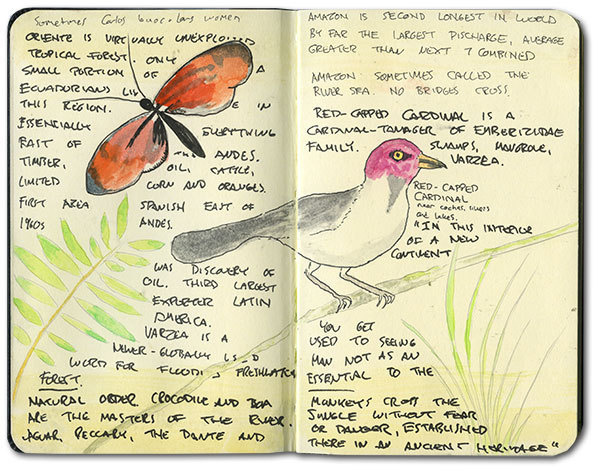 Sometimes Carlos
women
ORIENTE IS VIRTUALLY UNEXPLORED
TROPICAL FOREST. ONLY
SMALL PORTION OF A
ECUADORIANS LIVE
THIS REGION. E IN
ESSENCIALLY EVERYTHING
EAST OF THE ANDES.
TIMBER, OIL, CATTLE,
LIMITED CORN AND ORANGES.
FIRST AREA SPANISH EAST OF
1960s ANDES.
WAS DISCOVERY OF
OIL. THIRD LARGEST
EXPORTER LATIN
AMERICA.
VARZEA IS A
NEVER-GLOBALLY USED
WORD FOR FLOODING FRESHWATER
FOREST.
NATURAL ORDER CROCODILE AND BOA
ARE THE MASTERS OF THE RIVER.
JAGUAR, PECCARY, THE DANTE AND
AMAZON IS SECOND LONGEST IN WORLD
BY FAR THE LARGEST DISCHARGE, AVERAGE
GREATER THAN NEXT 7 COMBINED
AMAZON SOMETIMES CALLED THE
RIVER SEA. NO BRIDGES CROSS.
RED-CAPPED CARDINAL IS A
CARDINAL-TANAGER OF EMBERIZIDAE
FAMILY. SWAMPS, MANGROVE,
VARZEA.
RED-CAPPED
CARDINAL
near rivers
and lakes.
"IN THIS INTERIOR
OF A NEW
CONTINENT
YOU GET
USED TO SEEING
MAN NOT AS AN
ESSENTIAL TO THE
MONKEYS CROSS THE
JUNGLE WITHOUT FEAR
OR DANGER, ESTABLISHED
THERE IN AN ANCIENT HERITAGE"